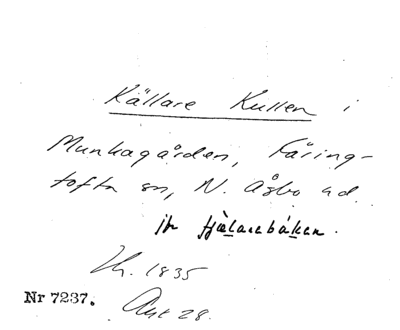 Källare Kullen i
Munkagården, Färing-
tofta sn, N. Åsbo hd.
jfr tjælarebáken.
Th. 1835
Nr 7237. Akt 28.